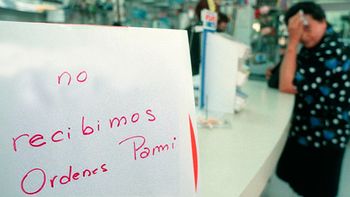 no
recibimos
Ordenes Pami